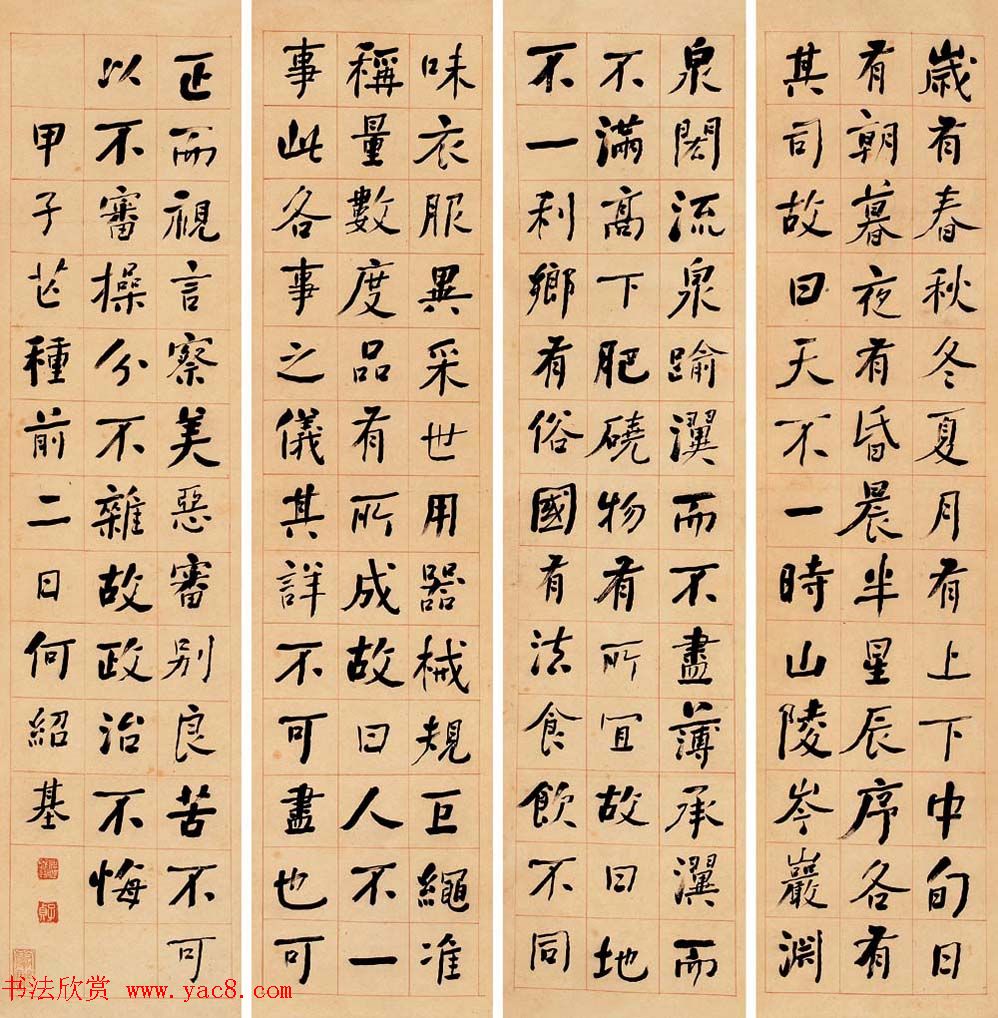 歲有春秋冬夏月有上下中旬日
有朝暮夜有昏晨半星辰序各有
其司故曰天不一時山陵岑巖淵
泉閎流泉踰瀷而不盡薄承瀷而
不滿高下肥磽物有所宜故曰地
不一利鄉有俗國有法食飲不同
味衣服異采世用器械規巨繩准
稱量數度品有所成故曰人不一
事此各事之儀其詳不可盡也可
正而視言察美惡審別良苦不可
以不審操分不雜故政治不悔
甲子芒種前二日何紹基
书法欣赏 www.yac8.com